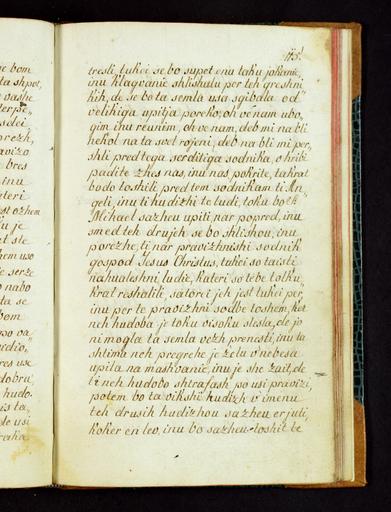 e bom
ta shpot,
oashe
sdei
prozh,
avizo
bres
inu
teri
uje
hem uso
e serze
o nabo
ta se
bom
po va
dobru,
hudo.
le usi
113.
tresli, tukei se bo supet enu taku jokanie,
inu klagvanie shlishalu per teh greshni
kih, de se bo ta semla usa sgibala od
velikiga upitja poreko, oh ve nam ubo,
gim inu reunim, oh ve nam, deb mi na bli
nekol na ta svet rojeni, deb na bli mi per,
shli pred tega serditiga sodnika, o hribi
padite zhes nas, inu nas pokrite, takrat
bodo toshili pred tem sodnikam ti An,
geli, inu ti hudizhi te ludi, toku bo S.
Mihael sazheu upiti nar popred, inu
smed teh drujeh se bo shlishou, inu
porezhe, ti nar pravizhnishi sodnik
gospod Jesus Christus, tukei so taisti
nahualeshni ludie, kateri so tebe tolku,
krat reshalili, sa torei jeh jest tukei per,
inu per te pravizhni sodbe toshem, ket
neh hudoba je toku visoku slesla, de jo
ni mogla ta semla vezh prenesti, inu ta
shtima neh pregrehe je zelu v nebesa
upila na mashvanie, inu je she zait, de
ti neh hudobo shtrafash po usi pravizi,
potem bo ta vikshi hudizh v imenu
teh drusih hudizhou sazheu erjuti,
koker en leo, inu bo sazheu toshit te